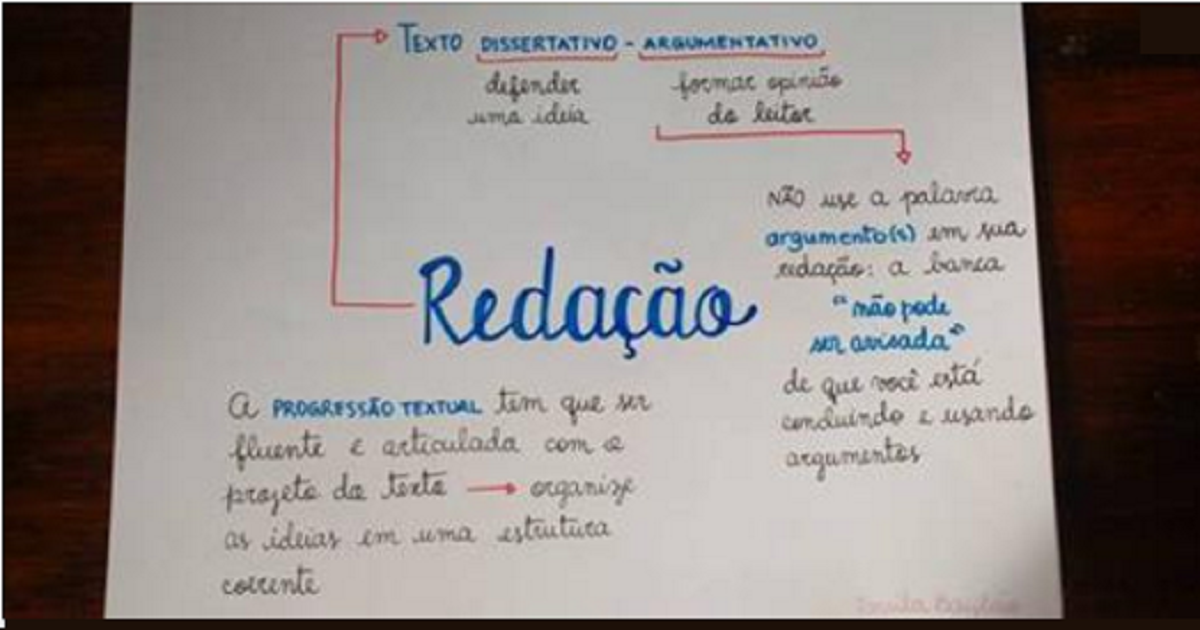 TEXTO DISSERTATIVO - ARGUMENTATIVO
defender
uma ideia
formar opinião
do leitor
NÃO use a palavra
argumento(s) em sua
redação: a banca
"não pode
ser avisada"
de que você está
concluindo e usando
argumentos
Redação
A PROGRESSÃO TEXTUAL tem que ser
fluente e articulada com o
projeto do texto → organize
as ideias em uma estrutura
coerente